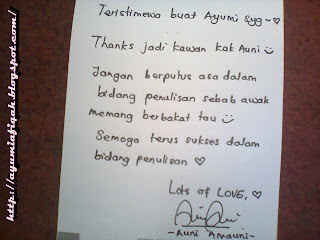 Teristimewa buat Ayumi Syg~♡
Thanks jadi kawan kak Auni ☺
Jangan berputus asa dalam
bidang penulisan sebab awak
memang berbakat tau ☺
Semoga terus sukses dalam
bidang penulisan ♡
Lots of LOVE, ♡
-Auni Amauni-
http://ayumiafiqah.blogspot.com/